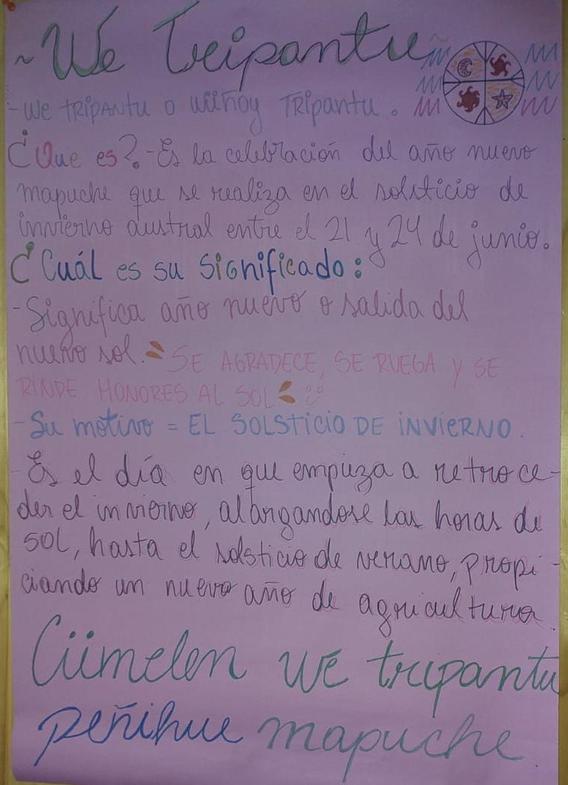 ~We Tripantu
-We TRIPANTU o WÜÑOY TRIPANTU.
¿Que es?.-Es la celebración del año nuevo
mapuche que se realiza en el solsticio de
invierno austral entre el 21 y 24 de junio.
¿Cuál es su significado:
-Significa año nuevo o salida del
nuevo sol. SE AGRADECE, SE RUEGA Y SE
RINDE HONORES AL SOL
-Su motivo = EL SOLSTICIO DE INVIERNO.
-Es el día en que empieza a retroce-
der el invierno, alargandose las horas de
SOL, hasta el solsticio de verano, propi-
ciando un nuevo año de agricultura.
Cümelen we tripantu
peñihue mapuche